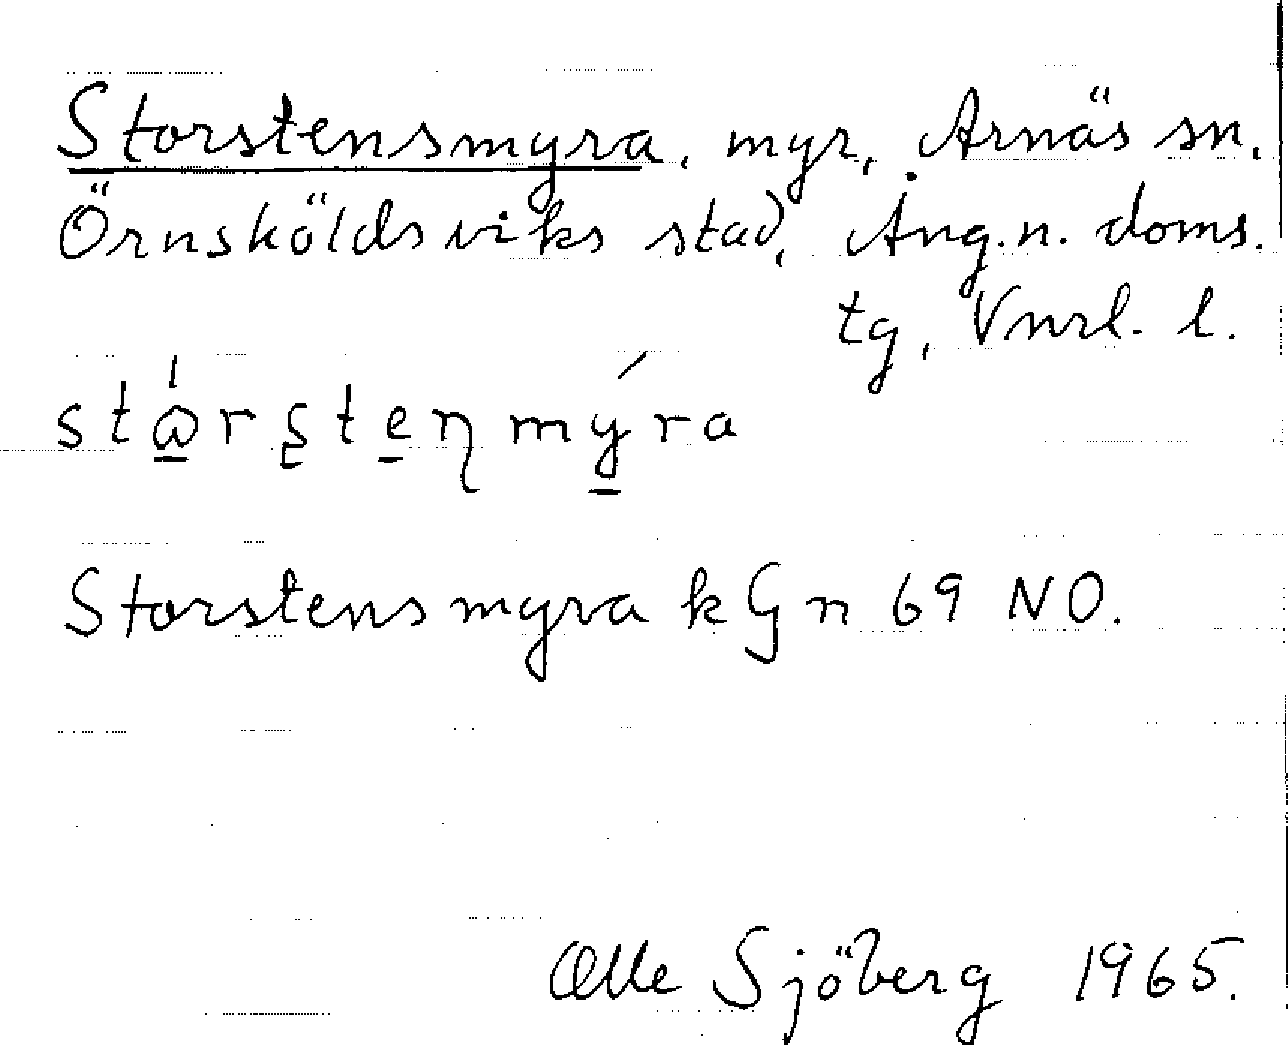 Storstensmyra, myr, Arnäs sn.
Örnsköldsviks stad, Ång.n. doms.
tg, Vnrl. l.
Storstensmyra k Gn 69 NO.
Olle Sjöberg 1965.